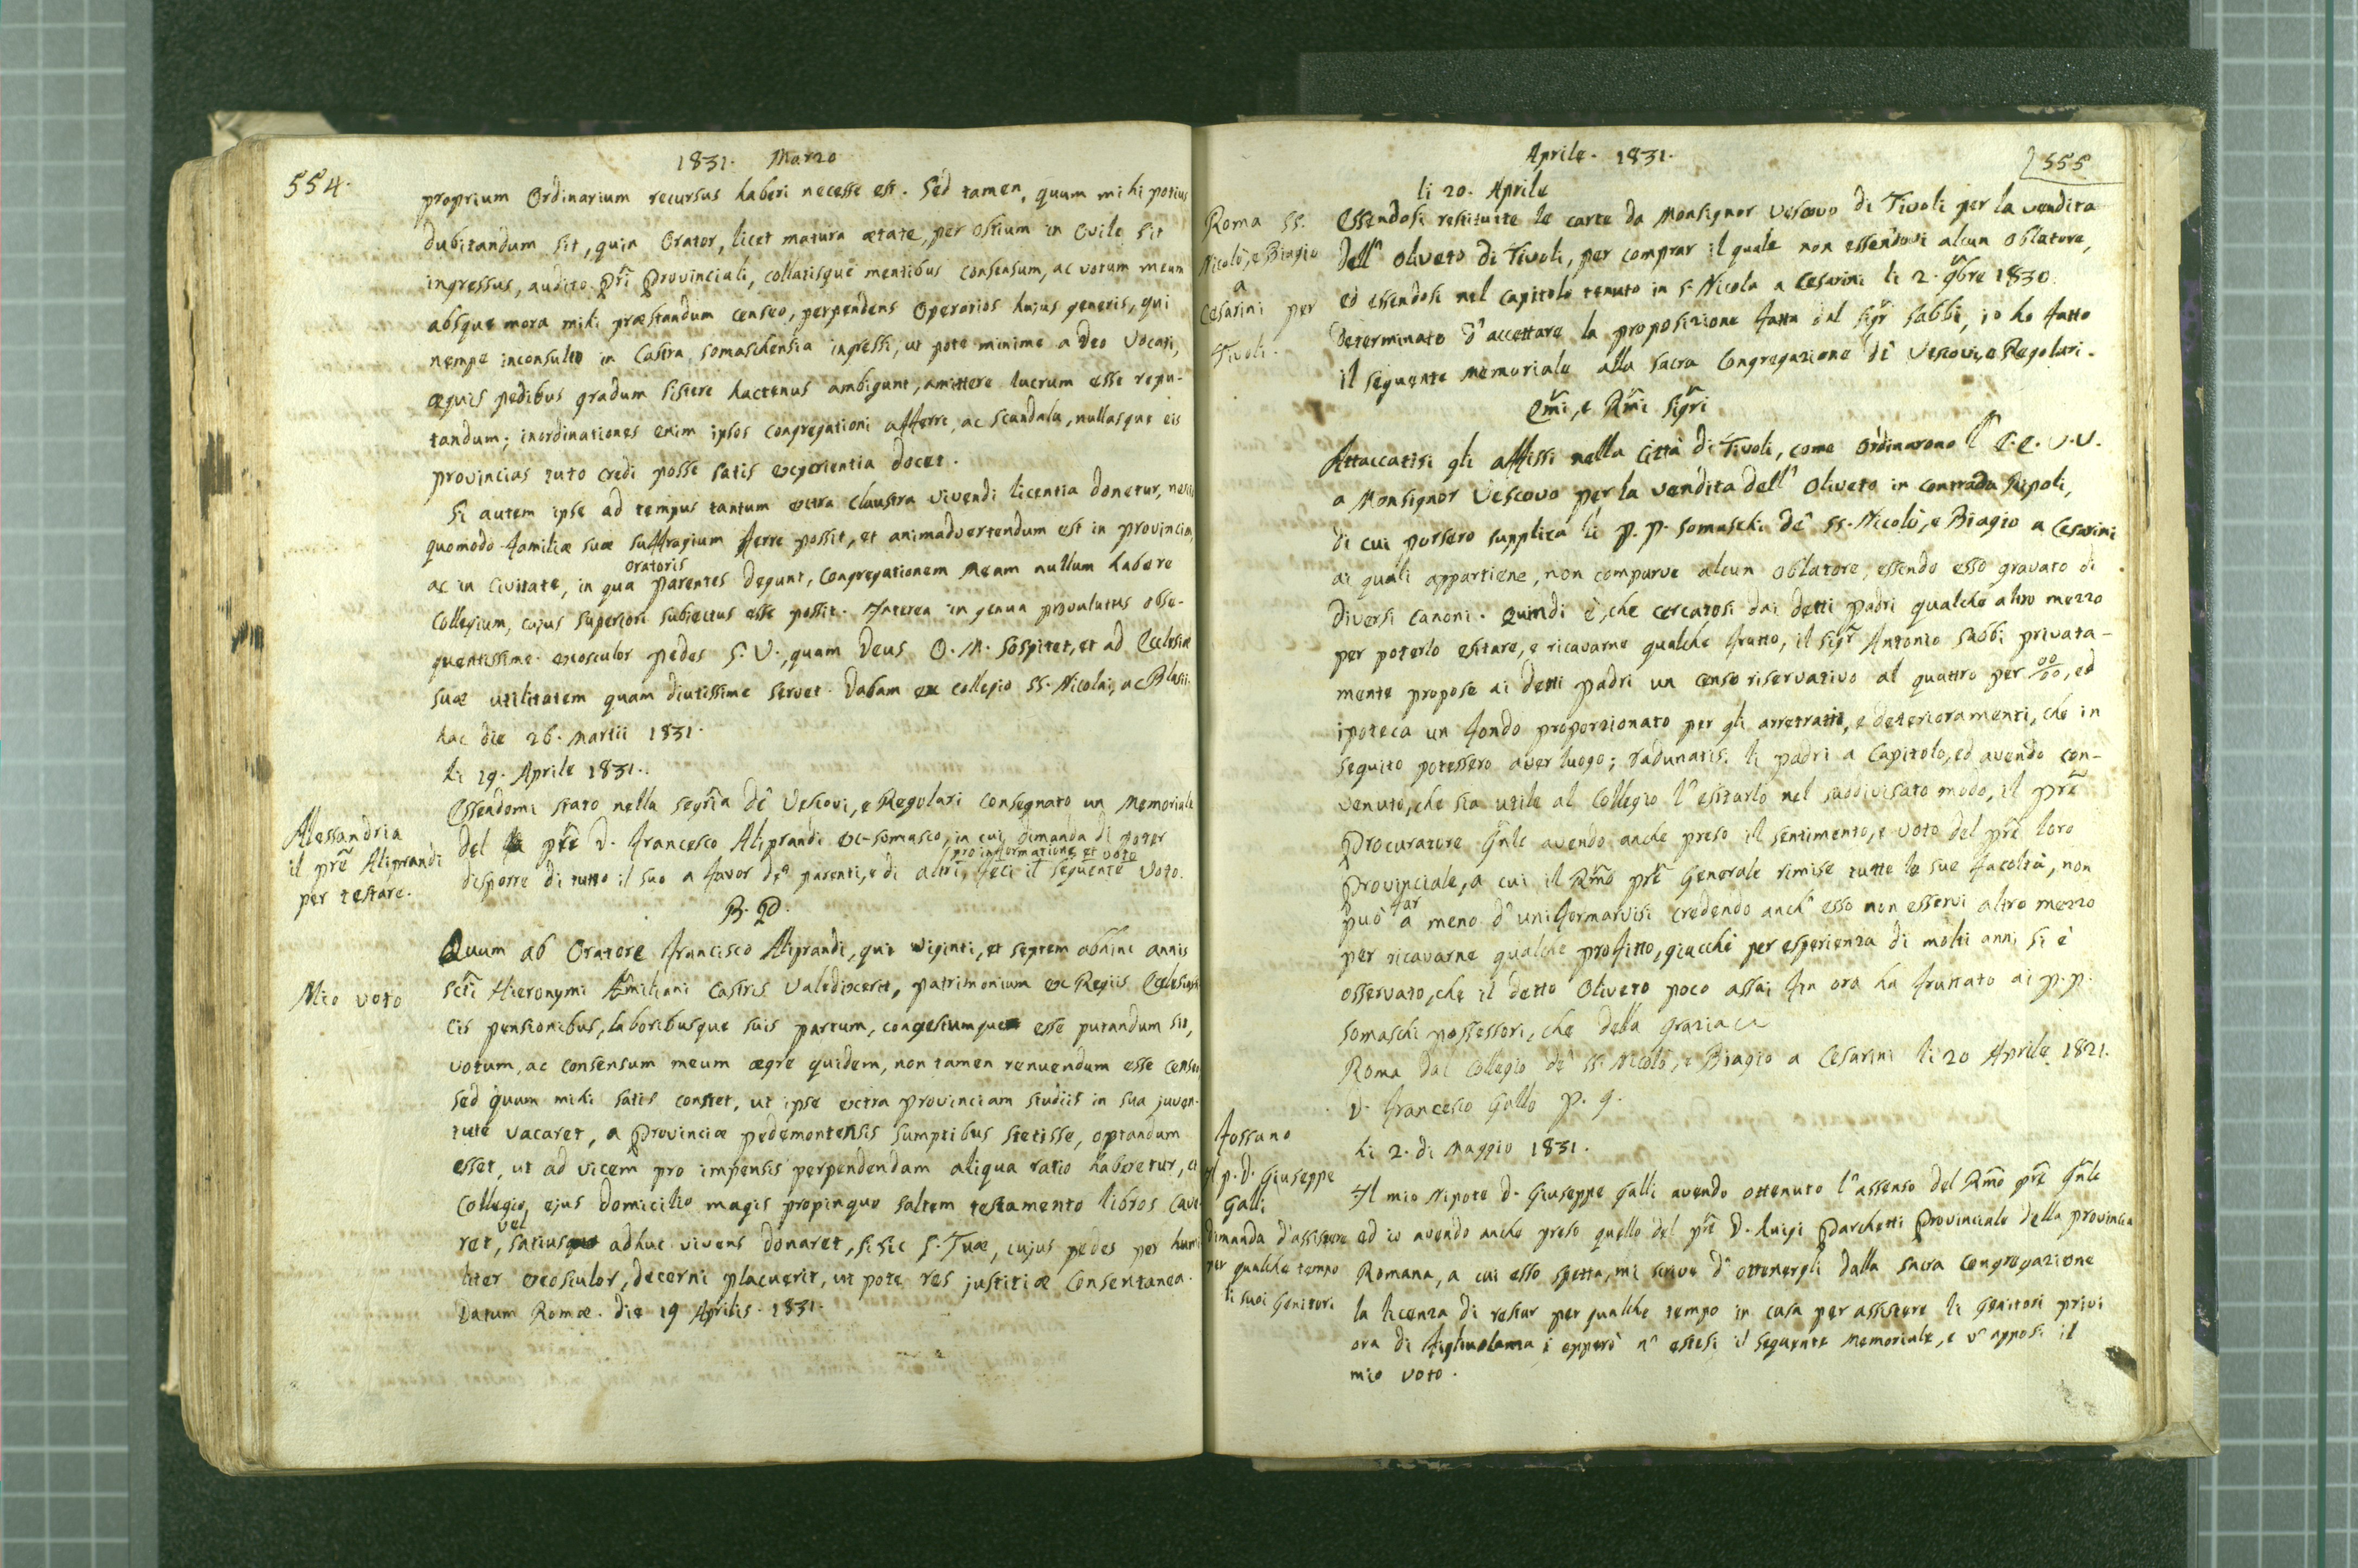 554.
1831. Marzo
proprium Ordinarium recursus haberi necesse est. Sed tamen, quum mihi potius
dubitandum sit, quin Orator, licet matura ætate, per Ostium in Ovile sit
ingressus, audito Pri Provinciali, collatisque mentibus consensum, ac votum meum
absque mora mihi præstandum censeo, perpendens Operarios hujus generis, qui
nempe inconsulto in Castra somaschensia ingressi, ut pote minime a Deo vocati,
æquis pedibus gradum sistere hactenus ambigunt, amittere lucrum esse repu-
tandum; inordinationes enim ipsos Congregationi afferre, ac scandala, nullasque eis
provincias tuto credi posse satis experientia docet.
Si autem ipse ad tempus tantum extra claustra vivendi licentia donetur,
quomodo familiæ suæ suffragium ferre possit, et animadvertendum est in provincia,
oratoris
ac in Civitate, in qua parentes degunt, Congregationem Meam nullum habere
Collegium, cujus superiori subiectus esse possit. Interea in genua provolutus obse-
quentissime exosculor pedes S. V., quam Deus O. M. sospitet, et ad Ecclesiæ
suæ utilitatem quam diutissime servet. Dabam ex collegio SS. Nicolai, ac Blasii
hac die 26. Martii 1831.
li 19. Aprile 1831.
Essendomi stato nella segria de' Vescovi, e Regolari consegnato un Memoriale
Alessandria
il pre Aliprandi
per testare.
del pre D. Francesco Aliprandi ex-somasco, in cui dimanda di poter
pro informatione et voto
disporre di tutto il suo a favor de' parenti, e di altri, feci il seguente voto.
B. P.
Mio voto
Quum ab Oratore Francisco Aliprandi, qui viginti, et septem abhinc annis
scti Hieronymi Æmiliani Castris valedixerit, patrimonium ex Regiis Ecclesiasti
cis pensionibus, laboribusque suis partum, congestumque esse putandum sit,
votum, ac consensum meum ægre quidem, non tamen renuendum esse censui
sed quum mihi satis constet, ut ipse extra provinciam studiis in sua juven-
tute vacaret, a Provinciæ pedemontensis sumptibus stetisse, optandum
esset, ut ad vicem pro impensis perpendendam aliqua ratio haberetur, et
Collegio, ejus domicilio magis propinquo saltem testamento libros cave
vel
ret, satius adhuc vivens donaret, si sic S. Tuæ, cujus pedes per humi
liter exosculor, decerni placuerit, ut pote res justitiæ consentanea.
Datum Romæ. die 19 Aprilis. 1831.
Aprile. 1831.
555
li 20. Aprile
Roma SS.
Nicolò, e Biagio
a
Cesarini per
Tivoli.
Essendosi restituite le carte da Monsignor Vescovo di Tivoli per la vendita
dell' Oliveto di Tivoli, per comprar il quale non essendovi alcun Oblatore,
ed essendosi nel capitolo tenuto in S. Nicola a Cesarini li 2. 9bre 1830.
determinato d'accettare la proposizione fatta dal sigr Sabbi, io ho fatto
il seguente Memoriale alla sacra Congregazione de' Vescovi, e Regolari.
Emi, e Rmi Sigri
Attaccatisi gli affissi nella Città di Tivoli, come Ordinarono l' E.E. V.V.
a Monsignor Vescovo per la vendita dell' Oliveto in contrada Stipoli,
di cui porsero supplica li P.P. Somaschi de' SS. Nicolò, e Biagio a Cesarini
ai quali appartiene, non comparve alcun Oblatore, essendo esso gravato di
diversi canoni. Quindi è, che cercatosi dai detti Padri qualche altro mezzo
per poterlo esitare, e ricavarne qualche frutto, il sigr Antonio Sabbi privata-
mente propose ai detti Padri un censo riservativo al quattro per 00/00, ed
ipoteca un fondo proporzionato per gli arretrati, e deterioramenti, che in
seguito potessero aver luogo; radunatisi li padri a Capitolo, ed avendo con-
venuto, che sia utile al Collegio l'esitarlo nel suddivisato modo, il pre
Procuratore Gnle avendo anche preso il sentimento, e voto del pre loro
Provinciale, a cui il Rmo pre Generale rimise tutte le sue facoltà, non
far
può a meno d'uniformarvisi credendo anch' esso non esservi altro mezzo
per ricavarne qualche profitto, giacchè per esperienza di molti anni si è
osservato, che il detto Oliveto poco assai fin ora ha fruttato ai P.P.
Somaschi possessori, che della grazia
Roma dal Collegio de' SS. Nicolò, e Biagio a Cesarini li 20 Aprile 1821.
D. Francesco Gallo P. G.
li 2. di Maggio 1831.
Fossano
Il p. D. Giuseppe
Galli
dimanda d'assistere
per qualche tempo
li suoi Genitori
Il mio Nipote D. Giuseppe Galli avendo ottenuto l'assenso del Rmo pre Gnle
ed io avendo anche preso quello del pre D. Luigi Parchetti Provinciale della provincia
Romana, a cui esso spetta, mi scrive d'ottenergli dalla sacra Congregazione
la licenza di restar per qualche tempo in casa per assistere li Genitori privi
ora di figliuolanza; epperò n' estesi il seguente Memoriale, e v'apposi il
mio voto.